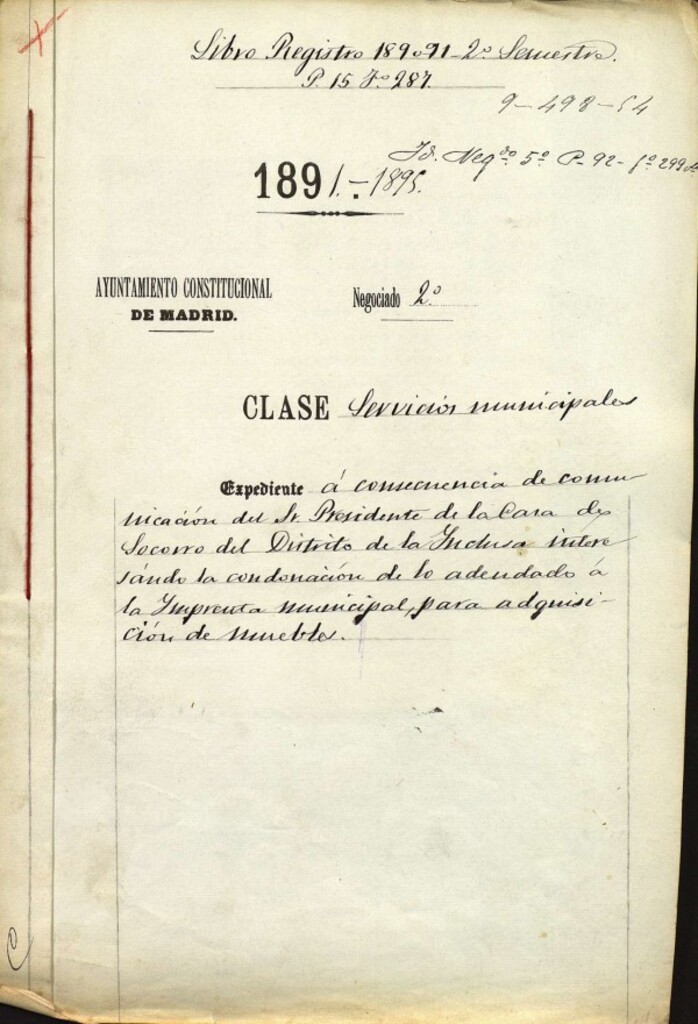 Libro Registro 1890-91 - 2º Semestre.
P. 15 Fº 287.
9-498-54
Id. Negdo 5º P- 92- fº 299
1891.-1895.
AYUNTAMIENTO CONSTITUCIONAL
DE MADRID.
Negociado 2º
CLASE Servicios municipales
Expediente á consecuencia de comu
nicación del Sr. Presidente de la Casa de
Socorro del Distrito de la Inclusa intere
sándo la condonación de lo adeudado á
la Imprenta municipal, para adquisi-
ción de muebles.